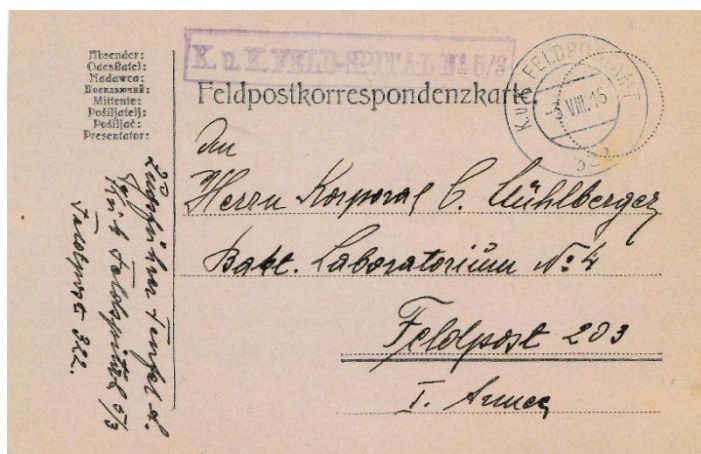 Absender:
Odesílatel:
Nadawca:
Mittente:
Pošiljatelj:
Pošiljač:
Presentator:
K. u. K. FELD-SPITAL Nº 5/3
Feldpostkorrespondenzkarte.
K.u.K. FELDPOSTAMT
3. VIII. 15
322
An
Herrn Korporal C. Mühlberger
Bakt. Laboratorium Nº 4
Feldpost 203
I. Armee
Zugsführer
K. u. K. Feldspital 5/3
Feldpost 322.